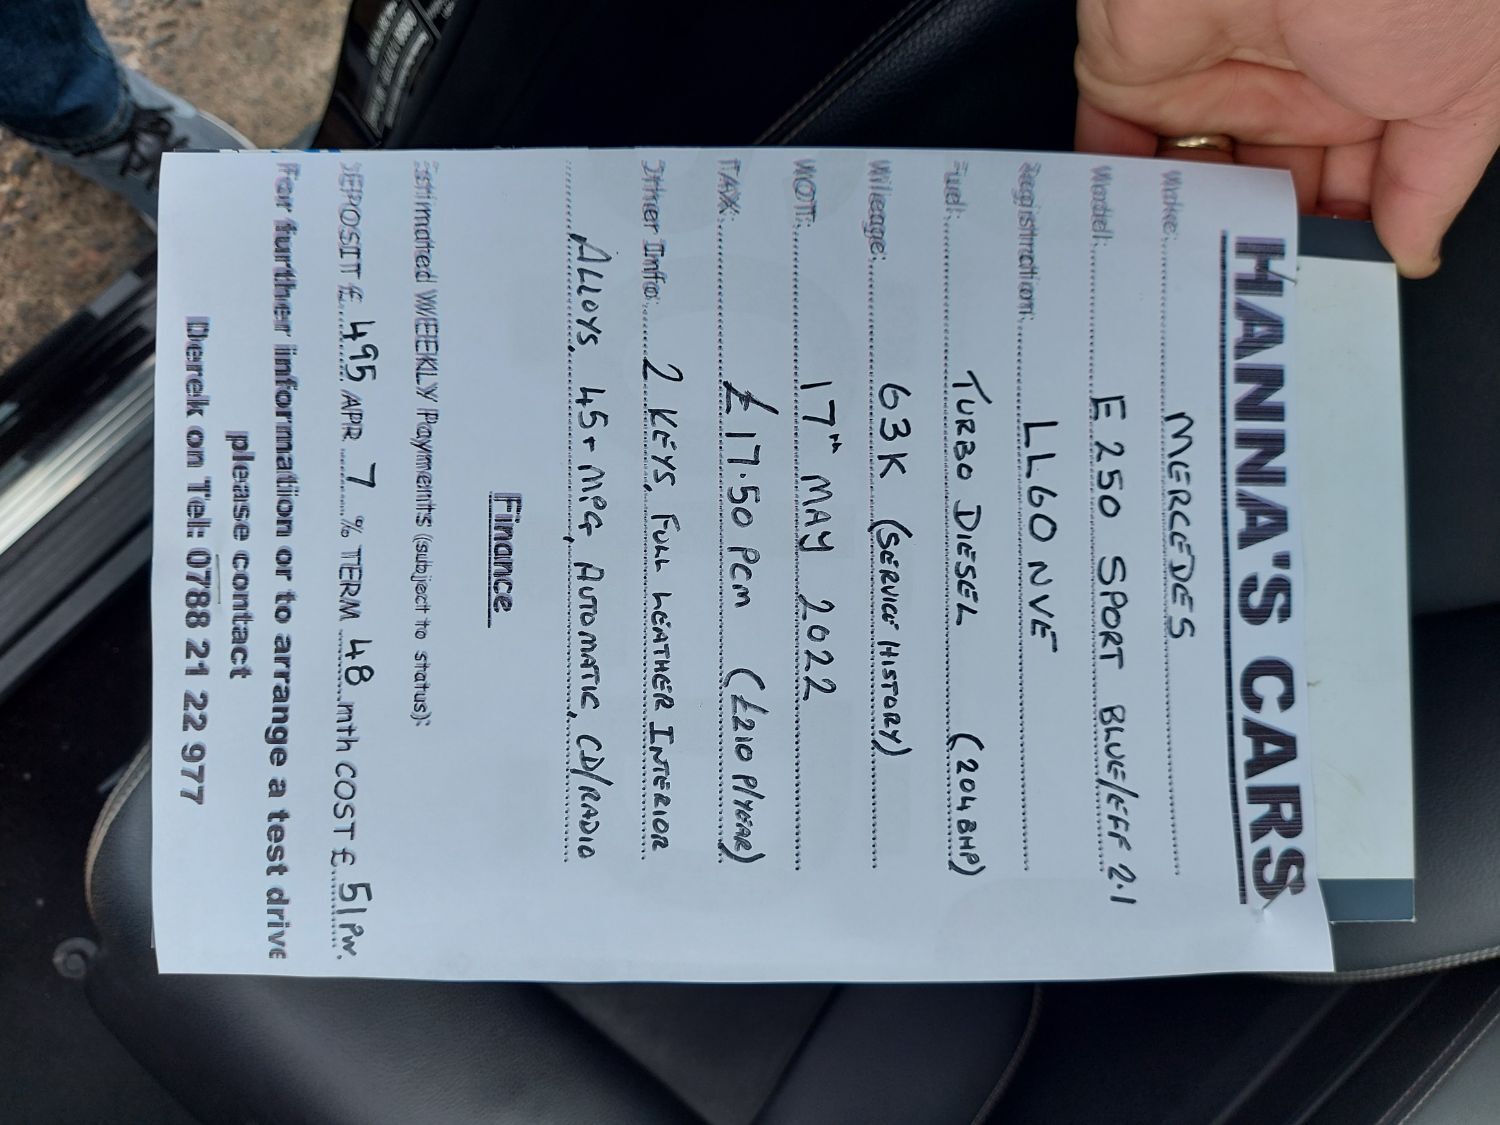 HANNA'S CARS
Make: MERCEDES
Model: E 250 SPORT BLUE/EFF 2.1
Registration: LL60 NVE
Fuel: TURBO DIESEL (204 BHP)
Mileage: 63K (SERVICE HISTORY)
MOT: 17TH MAY 2022
TAX: £17.50 PCM (£210 P/YEAR)
Other Info: 2 KEYS, FULL LEATHER INTERIOR
ALLOYS, 45+ MPG, AUTOMATIC, CD/RADIO
Finance
Estimated WEEKLY Payments (subject to status):
DEPOSIT £ 495 APR 7 % TERM 48 mth COST £ 51 PW.
For further information or to arrange a test drive
please contact
Derek on Tel: 0788 21 22 977